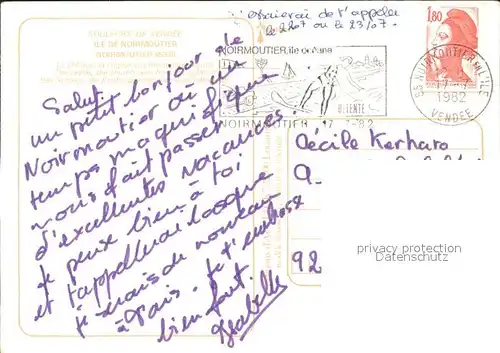 J'essaierai de t'appeler
le 22/07 ou le 23/07.
ÎLE DE NOIRMOUTIER
NOIRMOUTIER, Ile
DÉTENTE
NOIRMOUTIER 17 7-82
1,80
85 NOIRMOUTIER EN L'ILE
17-7
1982
VENDÉE
Salut,
un petit bonjour de
Noirmoutier où un
temps magnifique
nous fait passer
d'excellentes vacances.
Je peux bien à toi
et t'appellerai lorsque
je serais de nouveau
à Paris. Je t'embrasse
bien fort.
Isabelle
Cécile Kerharo
92
privacy protection
Datenschutz